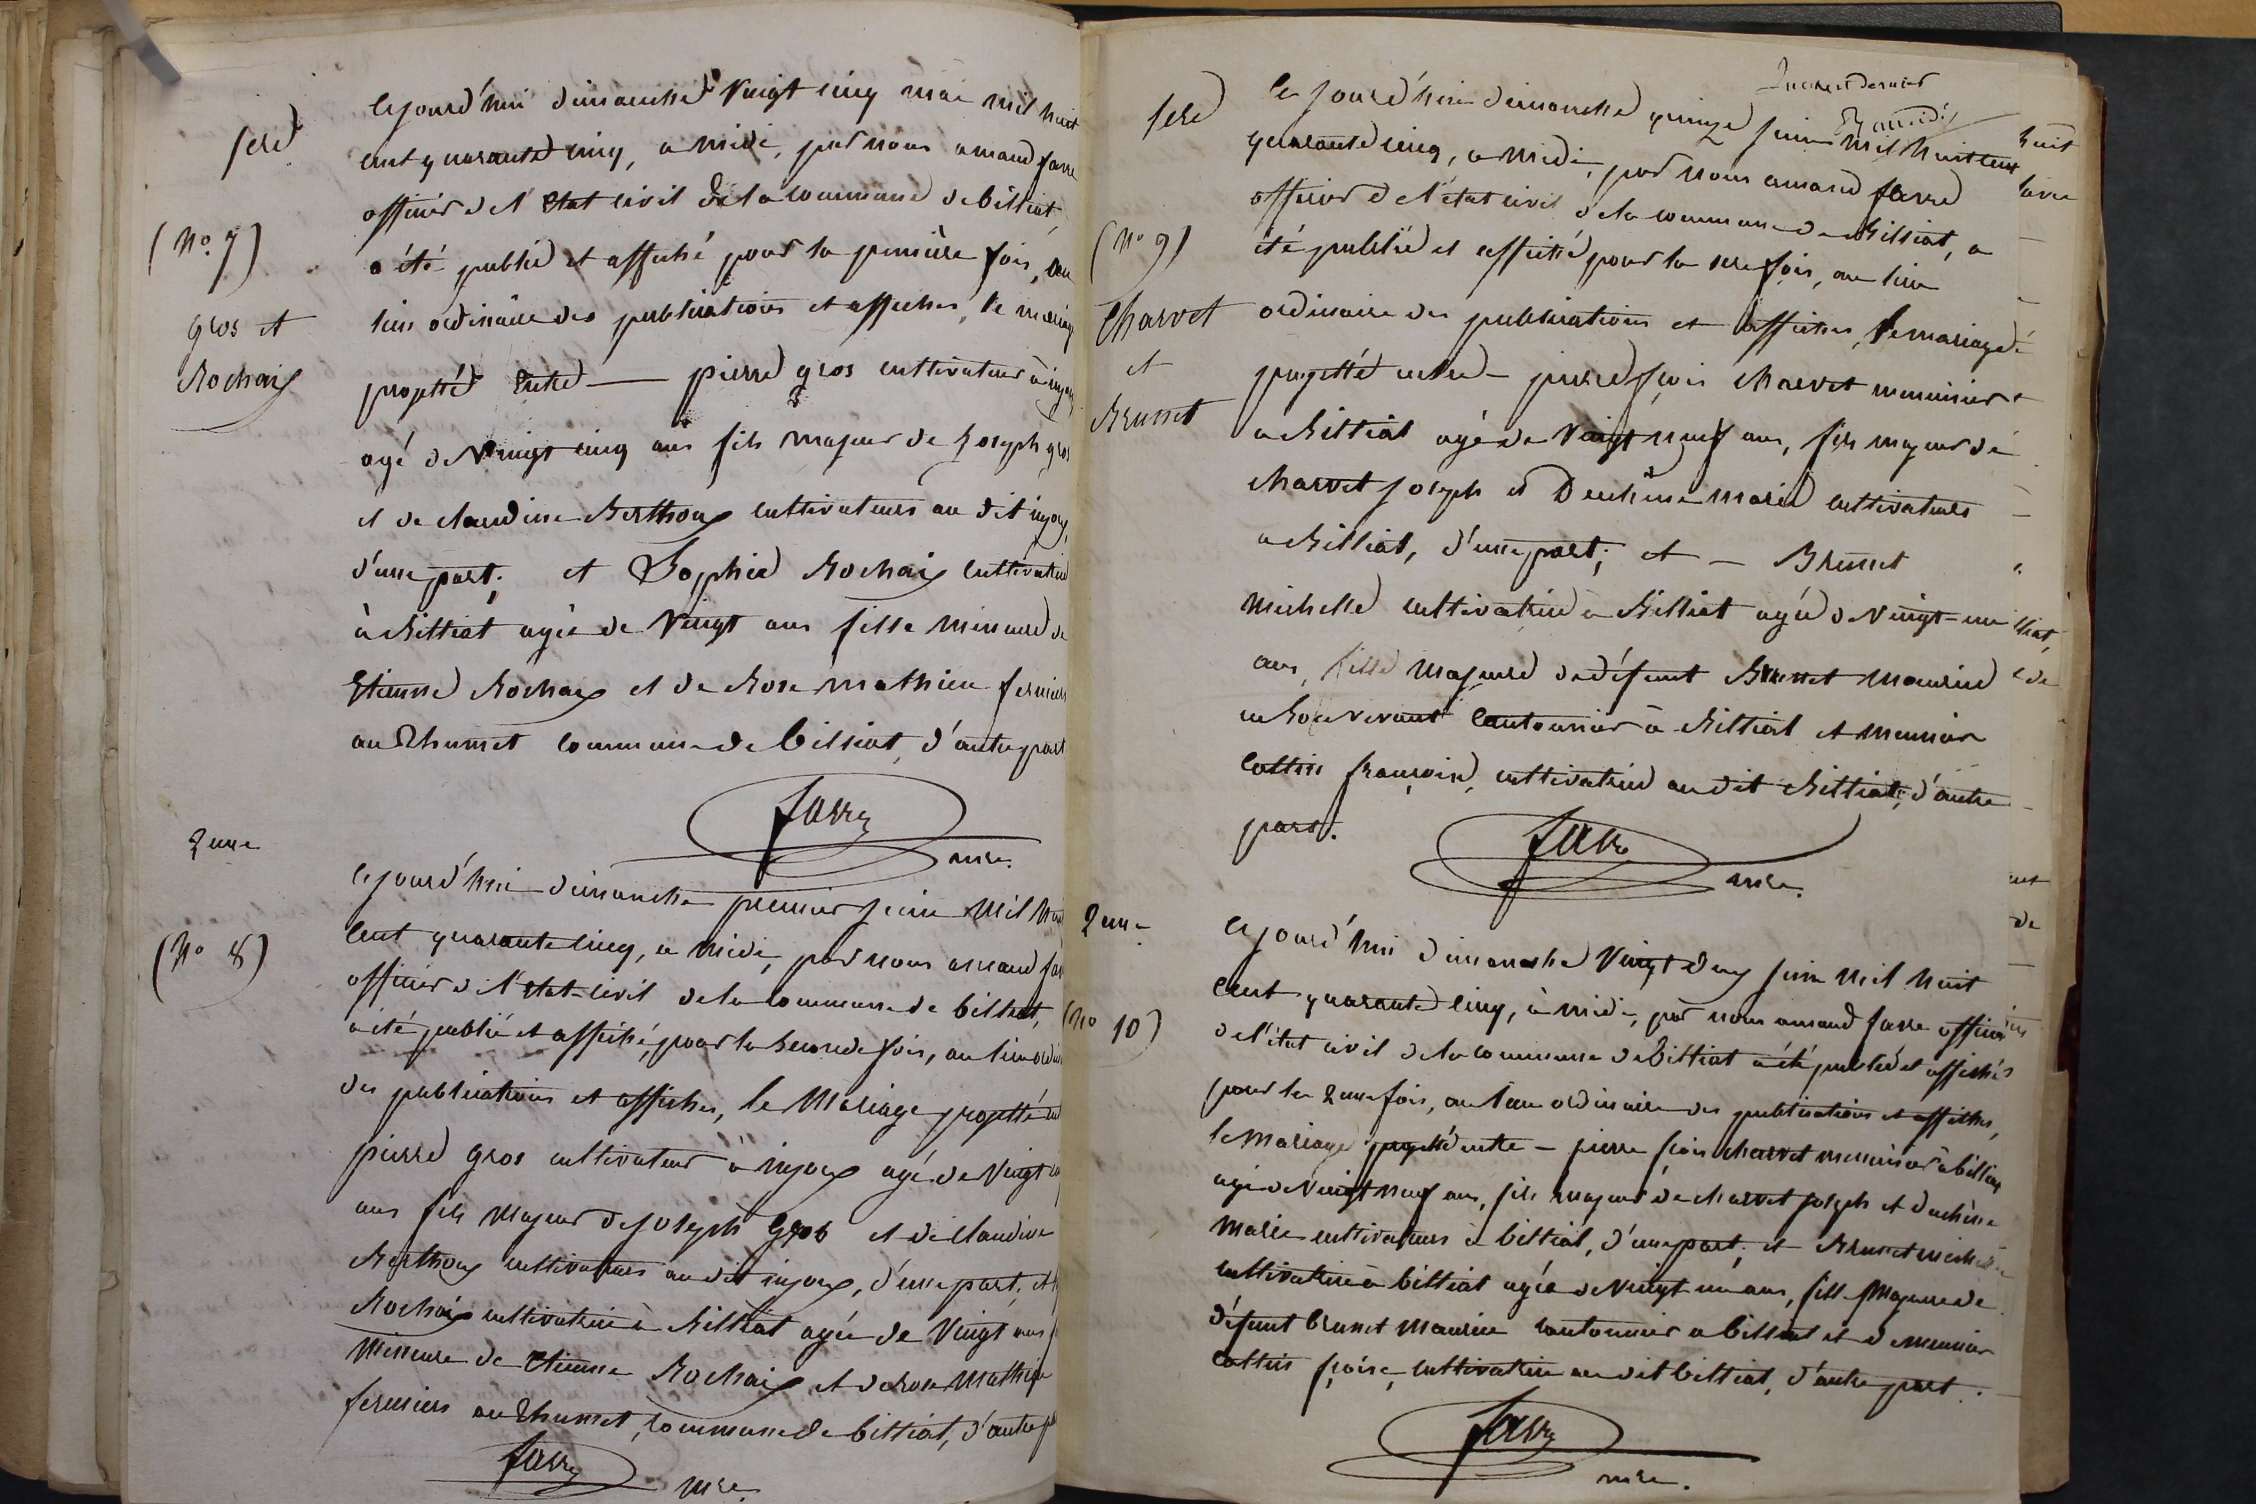 1ere
Cejourd'hui dimanche vingt cinq mai mil huit
cent quarante cinq, a midi, par nous amand favre
officier de l'etat civil de la commune de billiat,
(No. 7)
a été publié et affiché pour la premiere fois, au
gros et
lieu ordinaire des publications et affiches, le mariage
Rochaix
projetté entre — pierre gros cultivateur à injoux
agé de vingt cinq ans fils majeur de Joseph gros
et de claudine Berthoux cultivateurs au dit injoux,
d'une part; et Sophie Rochaix cultivatrice
à Billiat agée de vingt ans fille mineure de
Etienne Rochaix et de Rose mathieu fermiers
au Rhumet commune de billiat, d'autre part
favre
mre.
2eme
Cejourd'hui dimanche premier juin mil huit
(No 8)
cent quarante cinq, a midi, par nous amand fav
officier de l'etat-civil de la commune de billiat,
a été publié et affiché, pour la seconde fois, au lieu ordin
des publications et affiches, le mariage projetté en
pierre gros cultivateur à injoux agé de vingt cinq
ans fils majeur de joseph gros et de claudine
Berthoux cultivateurs au dit injoux, d'une part; et
Rochaix cultivatrice à Billiat agée de vingt ans
mineure de etienne Rochaix et de rose mathieu
fermiers au Rhumet, commune de billiat, d'autre p
favre
mre.
1ere
Ce jourd'hui dimanche quinze juin mil huit cent
quarante cinq, a midi, par nous amand favre
officier de l'état civil de la commune de Billiat, a
(No 9)
été publié et affiché pour la 1ere fois, au lieu
Charvet
ordinaire des publications et affiches, le mariage
et
projetté entre — pierre fçois charvet menuisier
Brunet
a Billiat agé de vingt neuf ans, fils majeur de
charvet joseph et Duchêne marie cultivateurs
a Billiat, d'une part; et — Brunet
michelle cultivatrice à Billiat agée de vingt-un
ans, fille majeure de défunt Brunet maurice
en son vivant cantonnier à Billiat et meunier
cottin françoise, cultivatrice au dit Billiat, d'autre
part.
favre
mre.
2eme
Cejourd'hui dimanche vingt deux juin mil huit
cent quarante cinq, à midi, par nous amand favre officier
(No 10)
de l'état civil de la commune de Billiat a été publié et affiché
pour la 2eme fois, au lieu ordinaire des publications et affiches,
le mariage projetté entre — pierre fçois charvet menuisier à billiat
agé de vingt neuf ans, fils majeur de charvet joseph et duchêne
marie cultivateurs à billiat, d'une part; et Brunet michelle
cultivatrice à billiat agée de vingt un ans, fille majeure de
défunt brunet maurice cantonnier a billiat et de meunier
cottin fçoise, cultivatrice au dit billiat, d'autre part.
favre
mre.